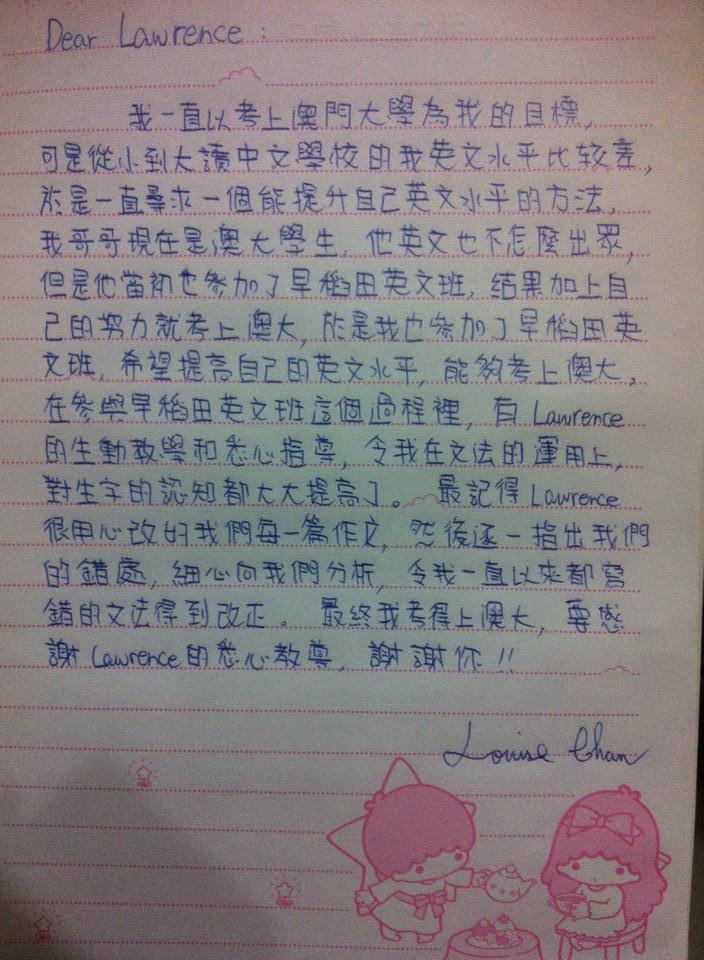 Dear Lawrence :
我一直以考上澳門大學為我的目標,
可是從小到大讀中文學校的我英文水平比较差,
於是一直尋求一個能提升自己英文水平的方法,
我哥哥現在是澳大學生, 他英文也不怎麼出眾,
但是他當初也參加了早稻田英文班, 結果加上自
己的努力就考上澳大, 於是我也參加了早稻田英
文班, 希望提高自己的英文水平, 能夠考上澳大,
在參與早稻田英文班這個過程裡, 有 Lawrence
的生動教學和悉心指導, 令我在文法的運用上,
對生字的認知都大大提高了。 最記得 Lawrence
很用心改的我們每一篇作文, 然後逐一指出我們
的錯處, 細心向我們分析, 令我一直以來都寫
錯的文法得到改正。 最終我考得上澳大, 要感
謝 Lawrence 的悉心教導, 謝謝你 !!
Louise Chan